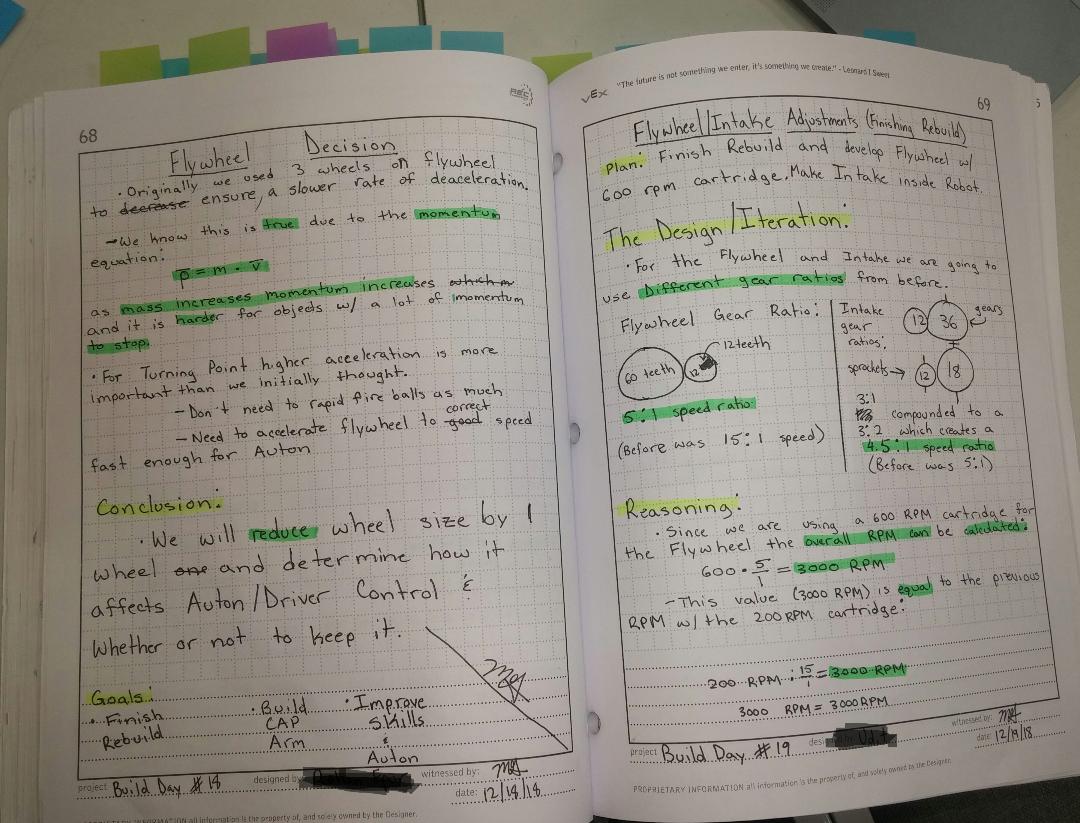 68
Flywheel Decision
· Originally we used 3 wheels on flywheel
to decrease ensure a slower rate of deaceleration.
→ We know this is true due to the momentum
equation:
p = m · v
as mass increases momentum increases which m
and it is harder for objects w/ a lot of momentum
to stop.
· For Turning Point higher acceleration is more
important than we initially thought.
- Don't need to rapid fire balls as much
correct
- Need to accelerate flywheel to good speed
fast enough for Auton
Conclusion:
· We will reduce wheel size by 1
wheel one and determine how it
affects Auton/Driver Control &
whether or not to keep it.
Goals:
· Finish
Rebuild
· Build
CAP
Arm
· Improve
Skills
&
Auton
project Build Day #18
designed by
witnessed by:
date: 12/18/18
PROPRIETARY INFORMATION all information is the property of, and solely owned by the Designer.
VEX "The future is not something we enter, it's something we create." - Leonard I Sweet
69
5
Flywheel/Intake Adjustments (Finishing Rebuild)
Plan: Finish Rebuild and develop Flywheel w/
600 rpm cartridge. Make Intake inside Robot.
The Design/Iteration:
· For the Flywheel and Intake we are going to
use Different gear ratios from before.
Flywheel Gear Ratio:
12 teeth
60 teeth 12
5:1 speed ratio
(Before was 15:1 speed)
Intake
gear
ratios:
12 36 gears
sprockets → 12 18
3:1
compounded to a
3:2 which creates a
4.5:1 speed ratio
(Before was 5:1)
Reasoning:
· Since we are using a 600 RPM cartridge for
the Flywheel the overall RPM can be calculated:
600 · 5/1 = 3000 RPM
- This value (3000 RPM) is equal to the previous
RPM w/ the 200 RPM cartridge:
200 RPM · 15/1 = 3000 RPM
3000 RPM = 3000 RPM
project Build Day #19
witnessed by:
date: 12/19/18
PROPRIETARY INFORMATION all information is the property of, and solely owned by the Designer.